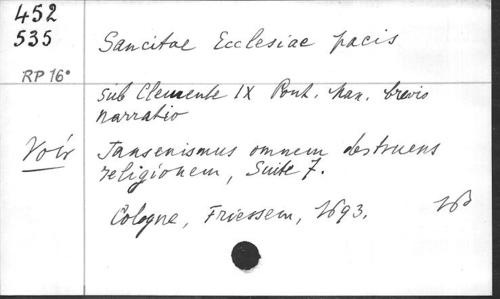 452
535
Sancitae Ecclesiae pacis
RP 16°
sub Clemente IX Pont. Max. brevis
narratio
Voir
Jansenismus omnem destruens
religionem, Suite 7.
Cologne, Friessem, 1693.